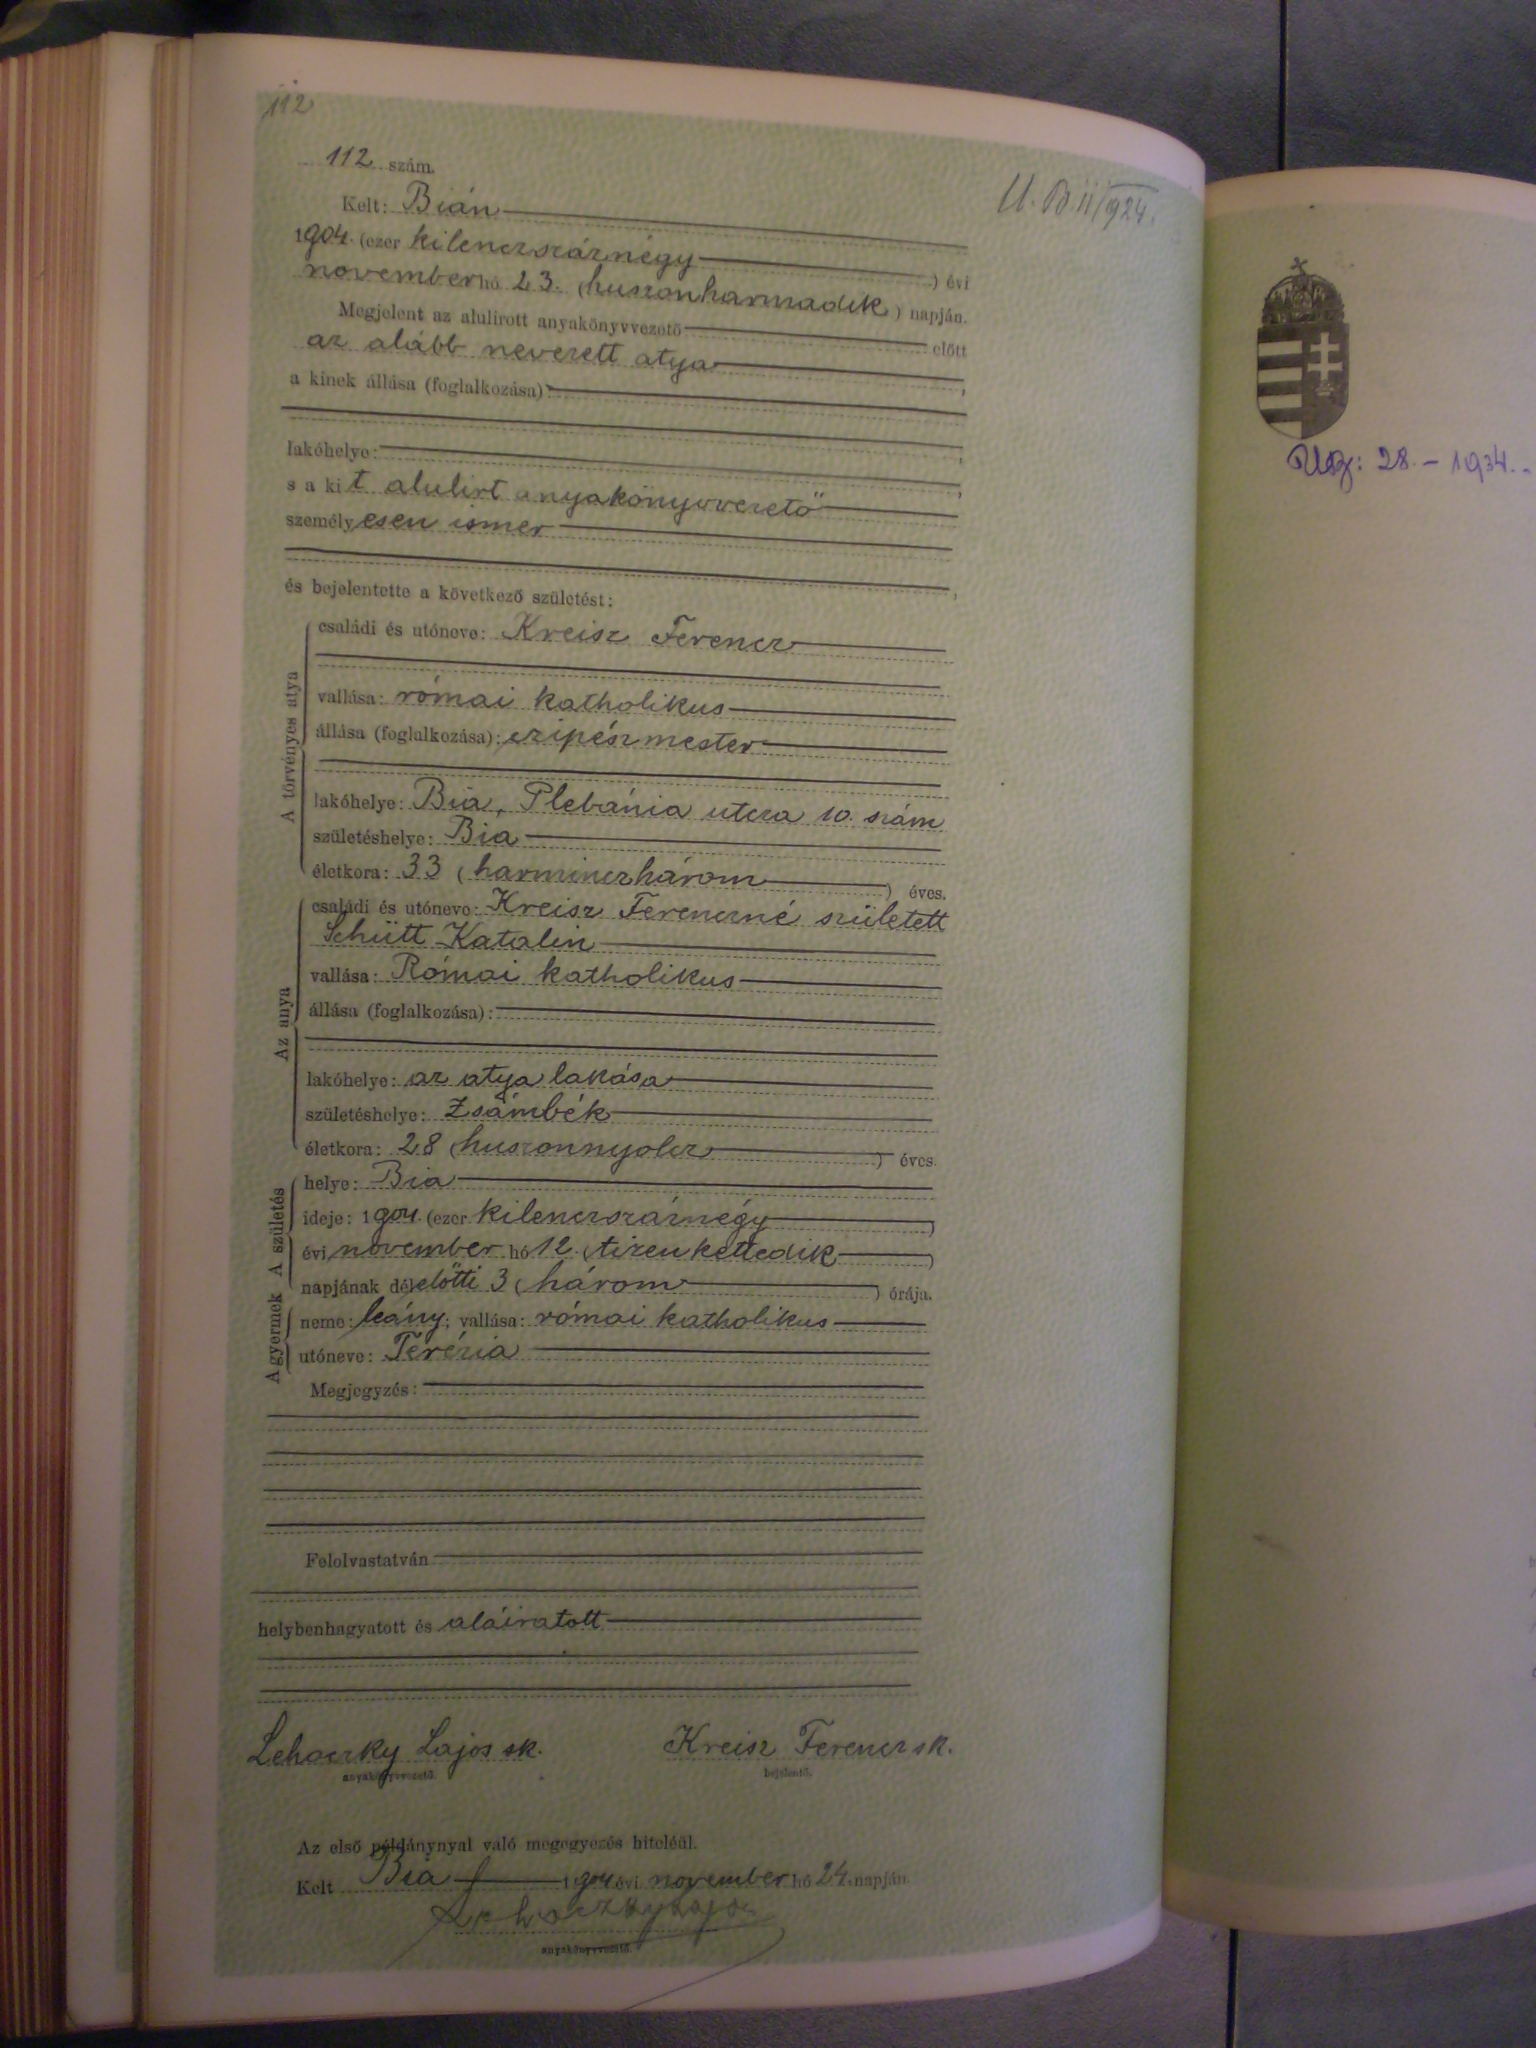 112
112 szám.
U. B. 11/924.
Kelt: Bián
1904. (ezer kilenczszáznégy) évi
november hó 23. (huszonharmadik) napján.
Megjelent az alulirott anyakönyvvezető előtt
az alább nevezett atya,
a kinek állása (foglalkozása):
lakóhelye:
s a kit alulirt anyakönyvvezető
személyesen ismer
és bejelentette a következő születést:
A törvényes atya
családi és utóneve: Kreisz Ferencz
vallása: római katholikus
állása (foglalkozása): czipész mester
lakóhelye: Bia, Plebánia utcza 10. szám
születéshelye: Bia
életkora: 33 (harminczhárom) éves.
Az anya
családi és utóneve: Kreisz Ferenczné született
Schütt Katalin
vallása: Római katholikus
állása (foglalkozása):
lakóhelye: az atya lakása
születéshelye: Zsámbék
életkora: 28 (huszonnyolcz) éves.
A születés
helye: Bia
ideje: 1904. (ezer kilenczszáznégy)
évi november hó 12. (tizenkettedik)
napjának délelőtti 3 (három) órája.
A gyermek
neme: leány; vallása: római katholikus
utóneve: Terézia
Megjegyzés:
Felolvastatván
helybenhagyatott és aláiratott
Lehoczky Lajos sk. Kreisz Ferencz sk.
anyakönyvvezető. bejelentő.
Az első példánynyal való megegyezés hiteléül.
Kelt Bia 1904 évi november hó 24. napján
Lehoczky Lajos
anyakönyvvezető.
28. - 1934.